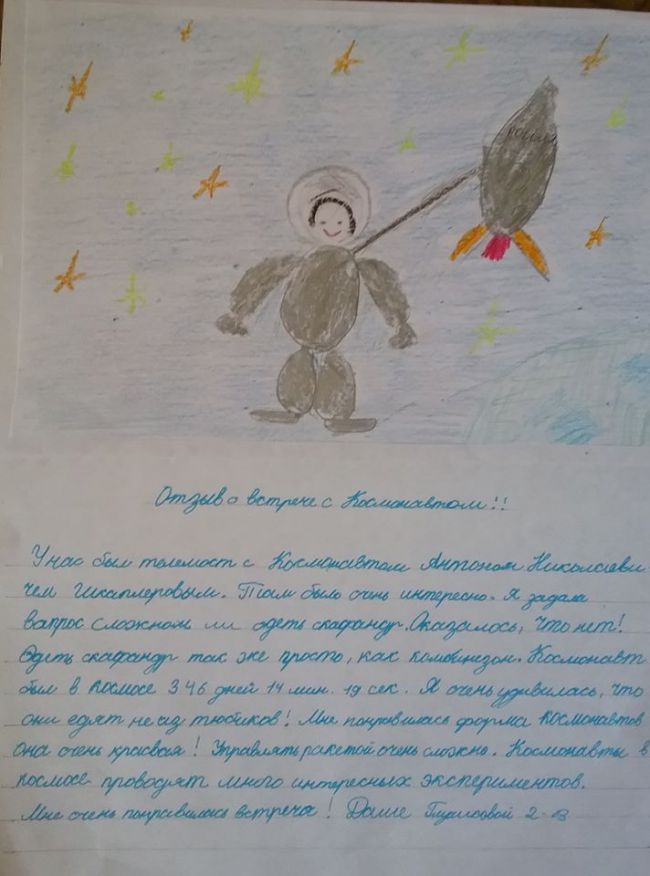 Отзыв о встрече с Космонавтом!!
У нас был телемост с Космонавтом Антоном Николаеви
чем Шкаплеровым. Там было очень интересно. Я задала
вапрос сложном ли одеть скафандр. Оказалось, что нет!
Одеть скафандр так же просто, как комбинезон. Космонавт
был в космосе 346 дней 14 мин. 19 сек. Я очень удивилась, что
они едят не из тюбиков! Мне понравилась форма космонавтов
она очень красвая! Управлять ракетой очень сложно. Космонавты в
космосе проводят много интересных экспериментов.
Мне очень понравилась встреча! Даше 2-